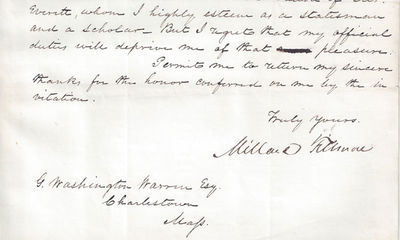 Everett, whom I highly esteem as a statesman
and a scholar. But I regret that my official
duties will deprive me of that pleasure.
Permit me to return my sincere
thanks for the honor conferred on me by the in
vitation.
Truly Yours.
Millard Fillmore
G. Washington Warren Esq.
Charlestown
Mass.